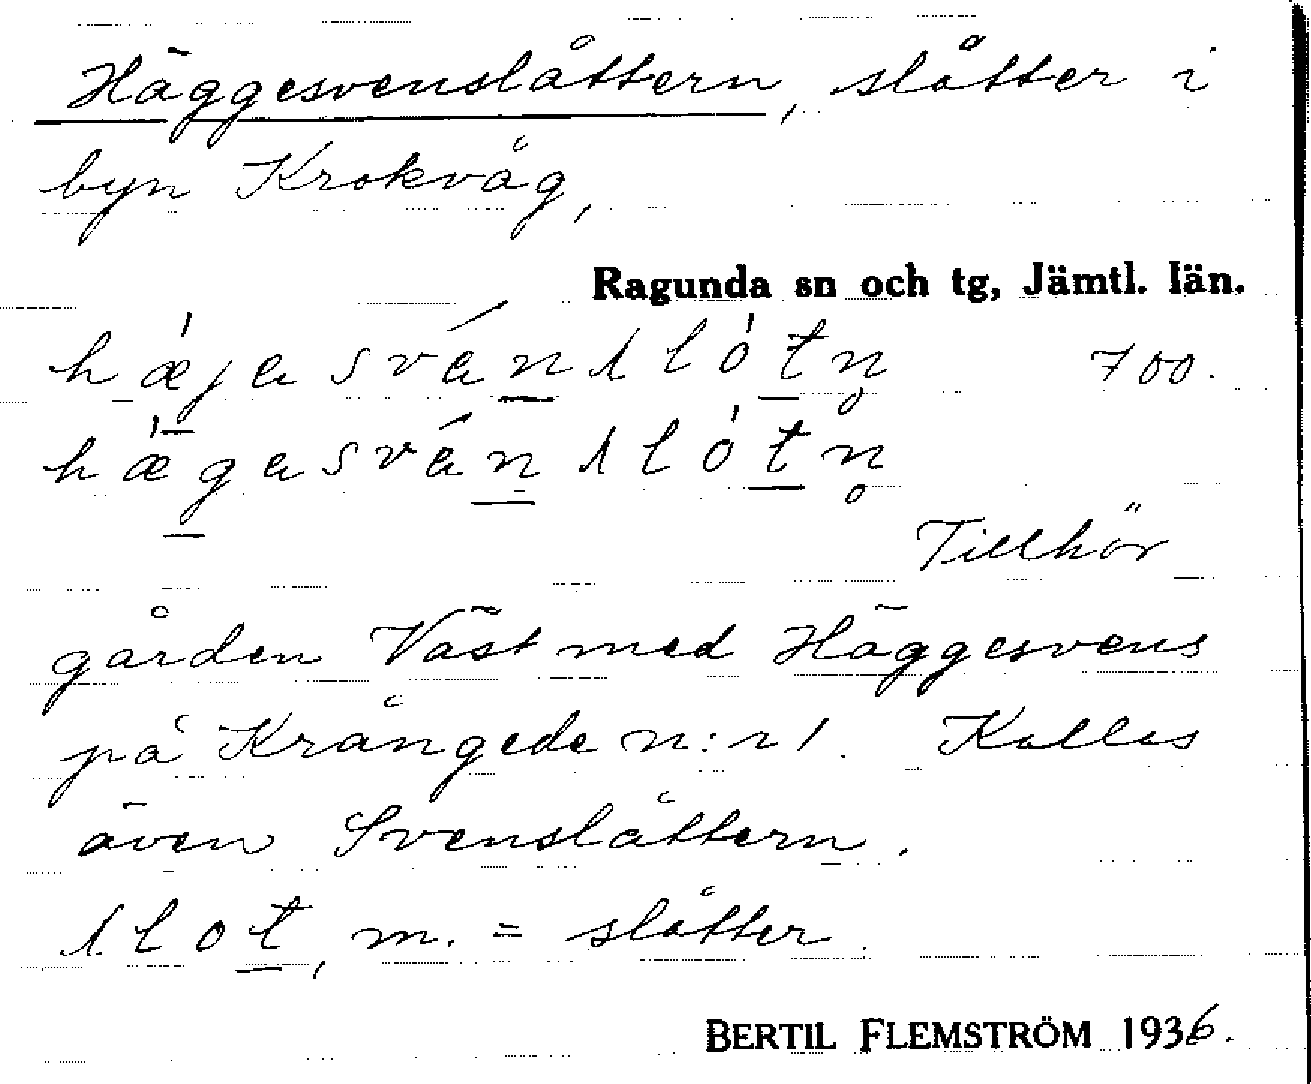 Häggesvenslåttern, slåtter i
byn Krokvåg,
Ragunda sn och tg, Jämtl. län.
hæ̍jasván̲slo̍t̲n̥ 700.
hæ̍g̲asván̲slo̍t̲n̥
Tillhör
gården Väst med Häggesvens
på Krångede n:r 1. Kallas
även Svenslåttern.
slot̲, m. = slåtter.
BERTIL FLEMSTRÖM 1936.